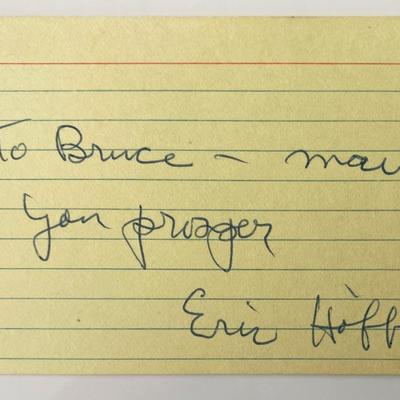 To Bruce – may
you prosper
Eric Hoff